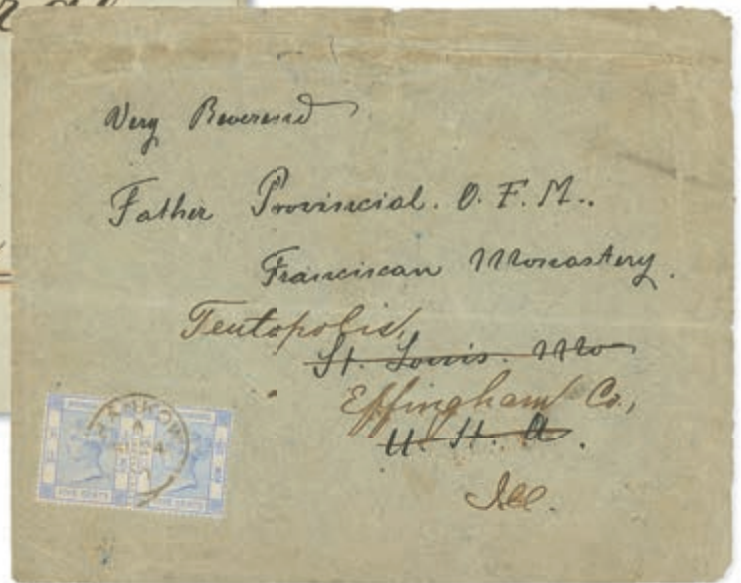 Very Reverend
Father Provincial. O. F. M.
Franciscan Monastery.
Teutopolis,
St. Louis. Mo
Effingham Co.,
U. St. A.
Ill.
HANKOW
FIVE CENTS FIVE CENTS